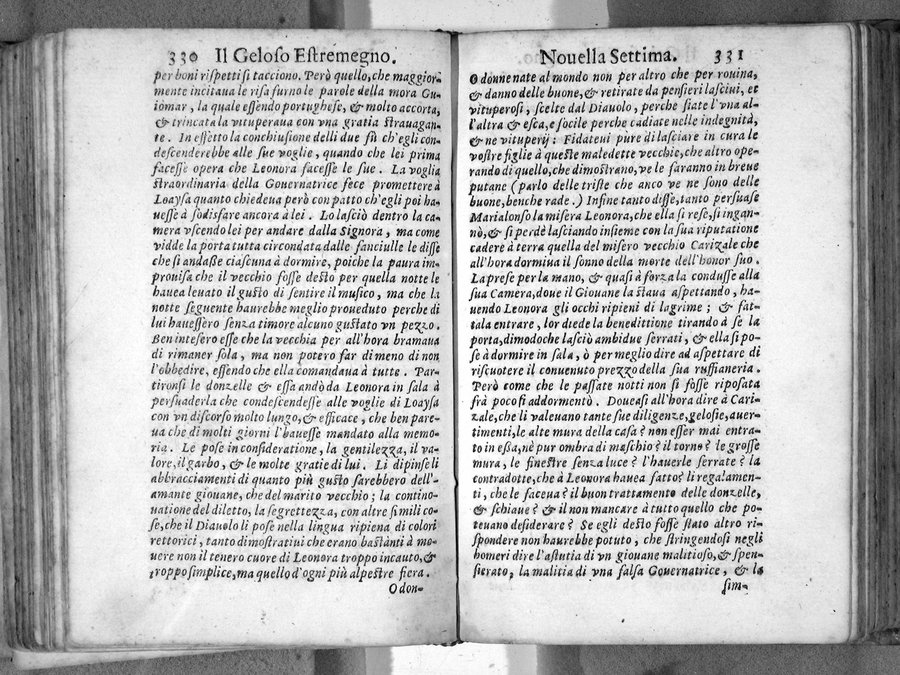 330 Il Geloso Estremegno.
per boni rispetti si tacciono. Però quello, che maggior-
mente incitaua le risa furno le parole della mora Gu-
iomar, la quale essendo portughese, & molto accorta,
& trincata la vituperaua con vna gratia strauagan-
te. In effetto la conchiusione delli due fù ch'egli con-
descenderebbe alle sue voglie, quando che lei prima
facesse opera che Leonora facesse le sue. La voglia
straordinaria della Gouernatrice fece promettere à
Loaysa quanto chiedeua però con patto ch'egli poi ha-
uesse à sodisfare ancora à lei. Lo lasciò dentro la ca-
mera vscendo lei per andare dalla Signora, ma come
vidde la porta tutta circondata dalle fanciulle le disse
che si andasse ciascuna à dormire, poiche la paura im-
prouisa che il vecchio fosse desto per quella notte le
hauea leuato il gusto di sentire il musico, ma che la
notte seguente haurebbe meglio proueduto perche di
lui hauessero senza timore alcuno gustato vn pezzo.
Ben intesero esse che la vecchia per all'hora bramaua
di rimaner sola, ma non potero far di meno di non
l'obbedire, essendo che ella comandaua à tutte. Par-
tironsi le donzelle & essa andò da Leonora in sala à
persuaderla che condescendesse alle voglie di Loaysa
con vn discorso molto lungo, & efficace, che ben pare-
ua che di molti giorni l'hauesse mandato alla memo-
ria. Le pose in consideratione, la gentilezza, il va-
lore, il garbo, & le molte gratie di lui. Li dipinse li
abbracciamenti di quanto più gusto sarebbero dell'-
amante giouane, che del marito vecchio; la contino-
uatione del diletto, la segrettezza, con altre simili co-
se, che il Diauolo li pose nella lingua ripiena di colori
rettorici, tanto dimostratiui che erano bastanti à mo-
uere non il tenero cuore di Leonora troppo incauto, &
troppo simplice, ma quello d'ogni più alpestre fiera.
O don-
Nouella Settima. 331
O donne nate al mondo non per altro che per rouina,
& danno delle buone, & retirate da pensieri lasciui, et
vituperosi, scelte dal Diauolo, perche siate l'vna al-
l'altra & esca, e focile perche cadiate nelle indegnità,
& ne vituperij: Fidateui pure di lasciare in cura le
vostre figlie à queste maledette vecchie, che altro ope-
rando di quello, che dimostrano, ve le faranno in breue
putane (parlo delle triste che anco ve ne sono delle
buone, benche rade.) Infine tanto disse, tanto persuase
Marialonso la misera Leonora, che ella si rese, si ingan-
nò, & si perdè lasciando insieme con la sua riputatione
cadere à terra quella del misero vecchio Carizale che
all'hora dormiua il sonno della morte dell'honor suo.
La prese per la mano, & quasi à forza la condusse alla
sua Camera, doue il Giouane la staua aspettando, ha-
uendo Leonora gli occhi ripieni di lagrime; & fat-
tala entrare, lor diede la benedittione tirando à se la
porta, dimodoche lasciò ambidue serrati, & ella si po-
se à dormire in sala, ò per meglio dire ad aspettare di
riscuotere il conuenuto prezzo della sua ruffianeria.
Però come che le passate notti non si fosse riposata
frà poco fi addormentò. Doueasi all'hora dire à Cari-
zale, che li valeuano tante sue diligenze, gelosie, auer-
timenti, le alte mura della casa? non esser mai entra-
to in essa, nè pur ombra di maschio? il torno? le grosse
mura, le finestre senza luce? l'hauerle serrate? la
contradotte, che à Leonora hauea fatto? li regalamen-
ti, che le faceua? il buon trattamento delle donzelle,
& schiaue? & il non mancare à tutto quello che po-
teuano desiderare? Se egli desto fosse stato altro ri-
spondere non haurebbe potuto, che stringendosi negli
homeri dire l'astutia di vn giouane malitioso, & spen-
sierato, la malitia di vna falsa Gouernatrice, & la
sim-